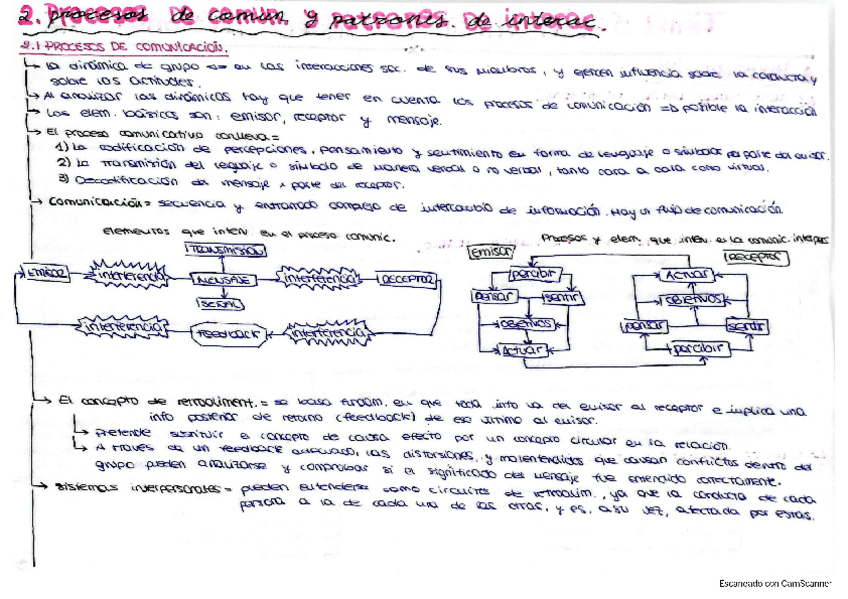 2. procesos de comun. y patrones. de interac.
2.1 PROCESOS DE COMUNICACIÓN.
↳ La dinámica de grupo se en las interacciones soc. de sus miembros, y ejercen influencia sobre la conducta y
sobre las actitudes.
↳ Al analizar las dinámicas hay que tener en cuenta los procesos de comunicación => posible la interacción
↳ Los elem. básicos son: emisor, receptor y mensaje.
↳ El proceso comunicativo conlleva=
1) La codificación de percepciones, pensamiento y sentimiento en forma de lenguaje o símbolos por parte del emisor.
2) La transmisión del leguaje o símbolo de manera verbal o no verbal, tanto cara a cara como virtual.
3) Decodificación del mensaje x parte del receptor.
↳ Comunicación = secuencia y entramado complejo de intercambio de información. Hay un flujo de comunicación
elementos que interv en el proceso comunic.
Procesos y elem. que interv en la comunic. interpers
TRANSMISIÓN
EMISOR
interferencia
MENSAJE
interferencia
RECEPTOR
SEÑAL
interferencia
FEEDBACK
interferencia
emisor
percibir
pensar
sentir
objetivos
Actuar
RECEPTOR
Actuar
objetivos
pensar
sentir
percibir
↳ El concepto de retroaliment. = se basa fundam. en que toda info va del emisor al receptor e implica una
info posterior de retorno (feedback) de ese último al emisor.
↳ Pretende sustituir el concepto de causa efecto por un concepto circular en la relación.
↳ A través de un feedback adecuado, las distorsiones, y malentendidos que causan conflictos dentro del
grupo pueden analizarse y comprobar si el significado del mensaje fue entendido correctamente.
↳ Sistemas interpersonales = pueden entenderse como circuitos de retroalim., ya que la conducta de cada
persona a la de cada una de las otras, y es, a su vez, afectada por estas.
Escaneado con CamScanner